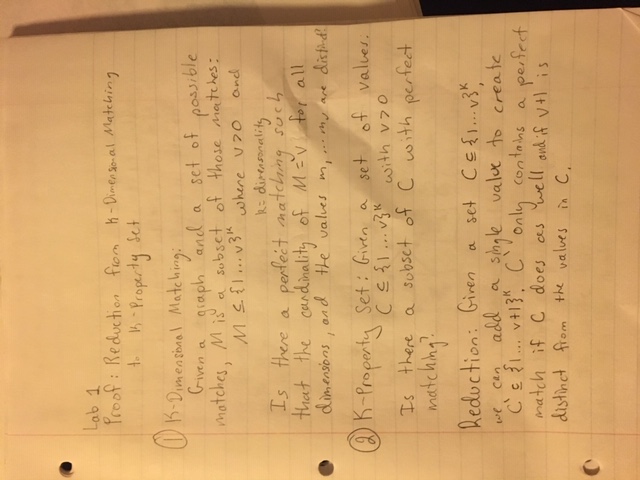 Lab 1
Proof: Reduction from K-Dimensional Matching
to K-Property Set
① K-Dimensional Matching:
Given a graph and a set of possible
matches, M is a subset of those matches:
M ⊆ {1...v}ᵏ where v>0 and
k = dimensonality
Is there a perfect matching such
that the cardinality of M = v for all
dimensions, and the values m, ... mᵥ are distinct?
② K-Property Set: Given a set of values.
C ⊆ {1...v}ᵏ with v>0
Is there a subset of C with perfect
matching?
Reduction: Given a set C ⊆ {1...v}ᵏ,
we can add a single value to create
C` ⊆ {1... v+1}ᵏ. C` only contains a perfect
match if C does as well and if v+1 is
distinct from the values in C.